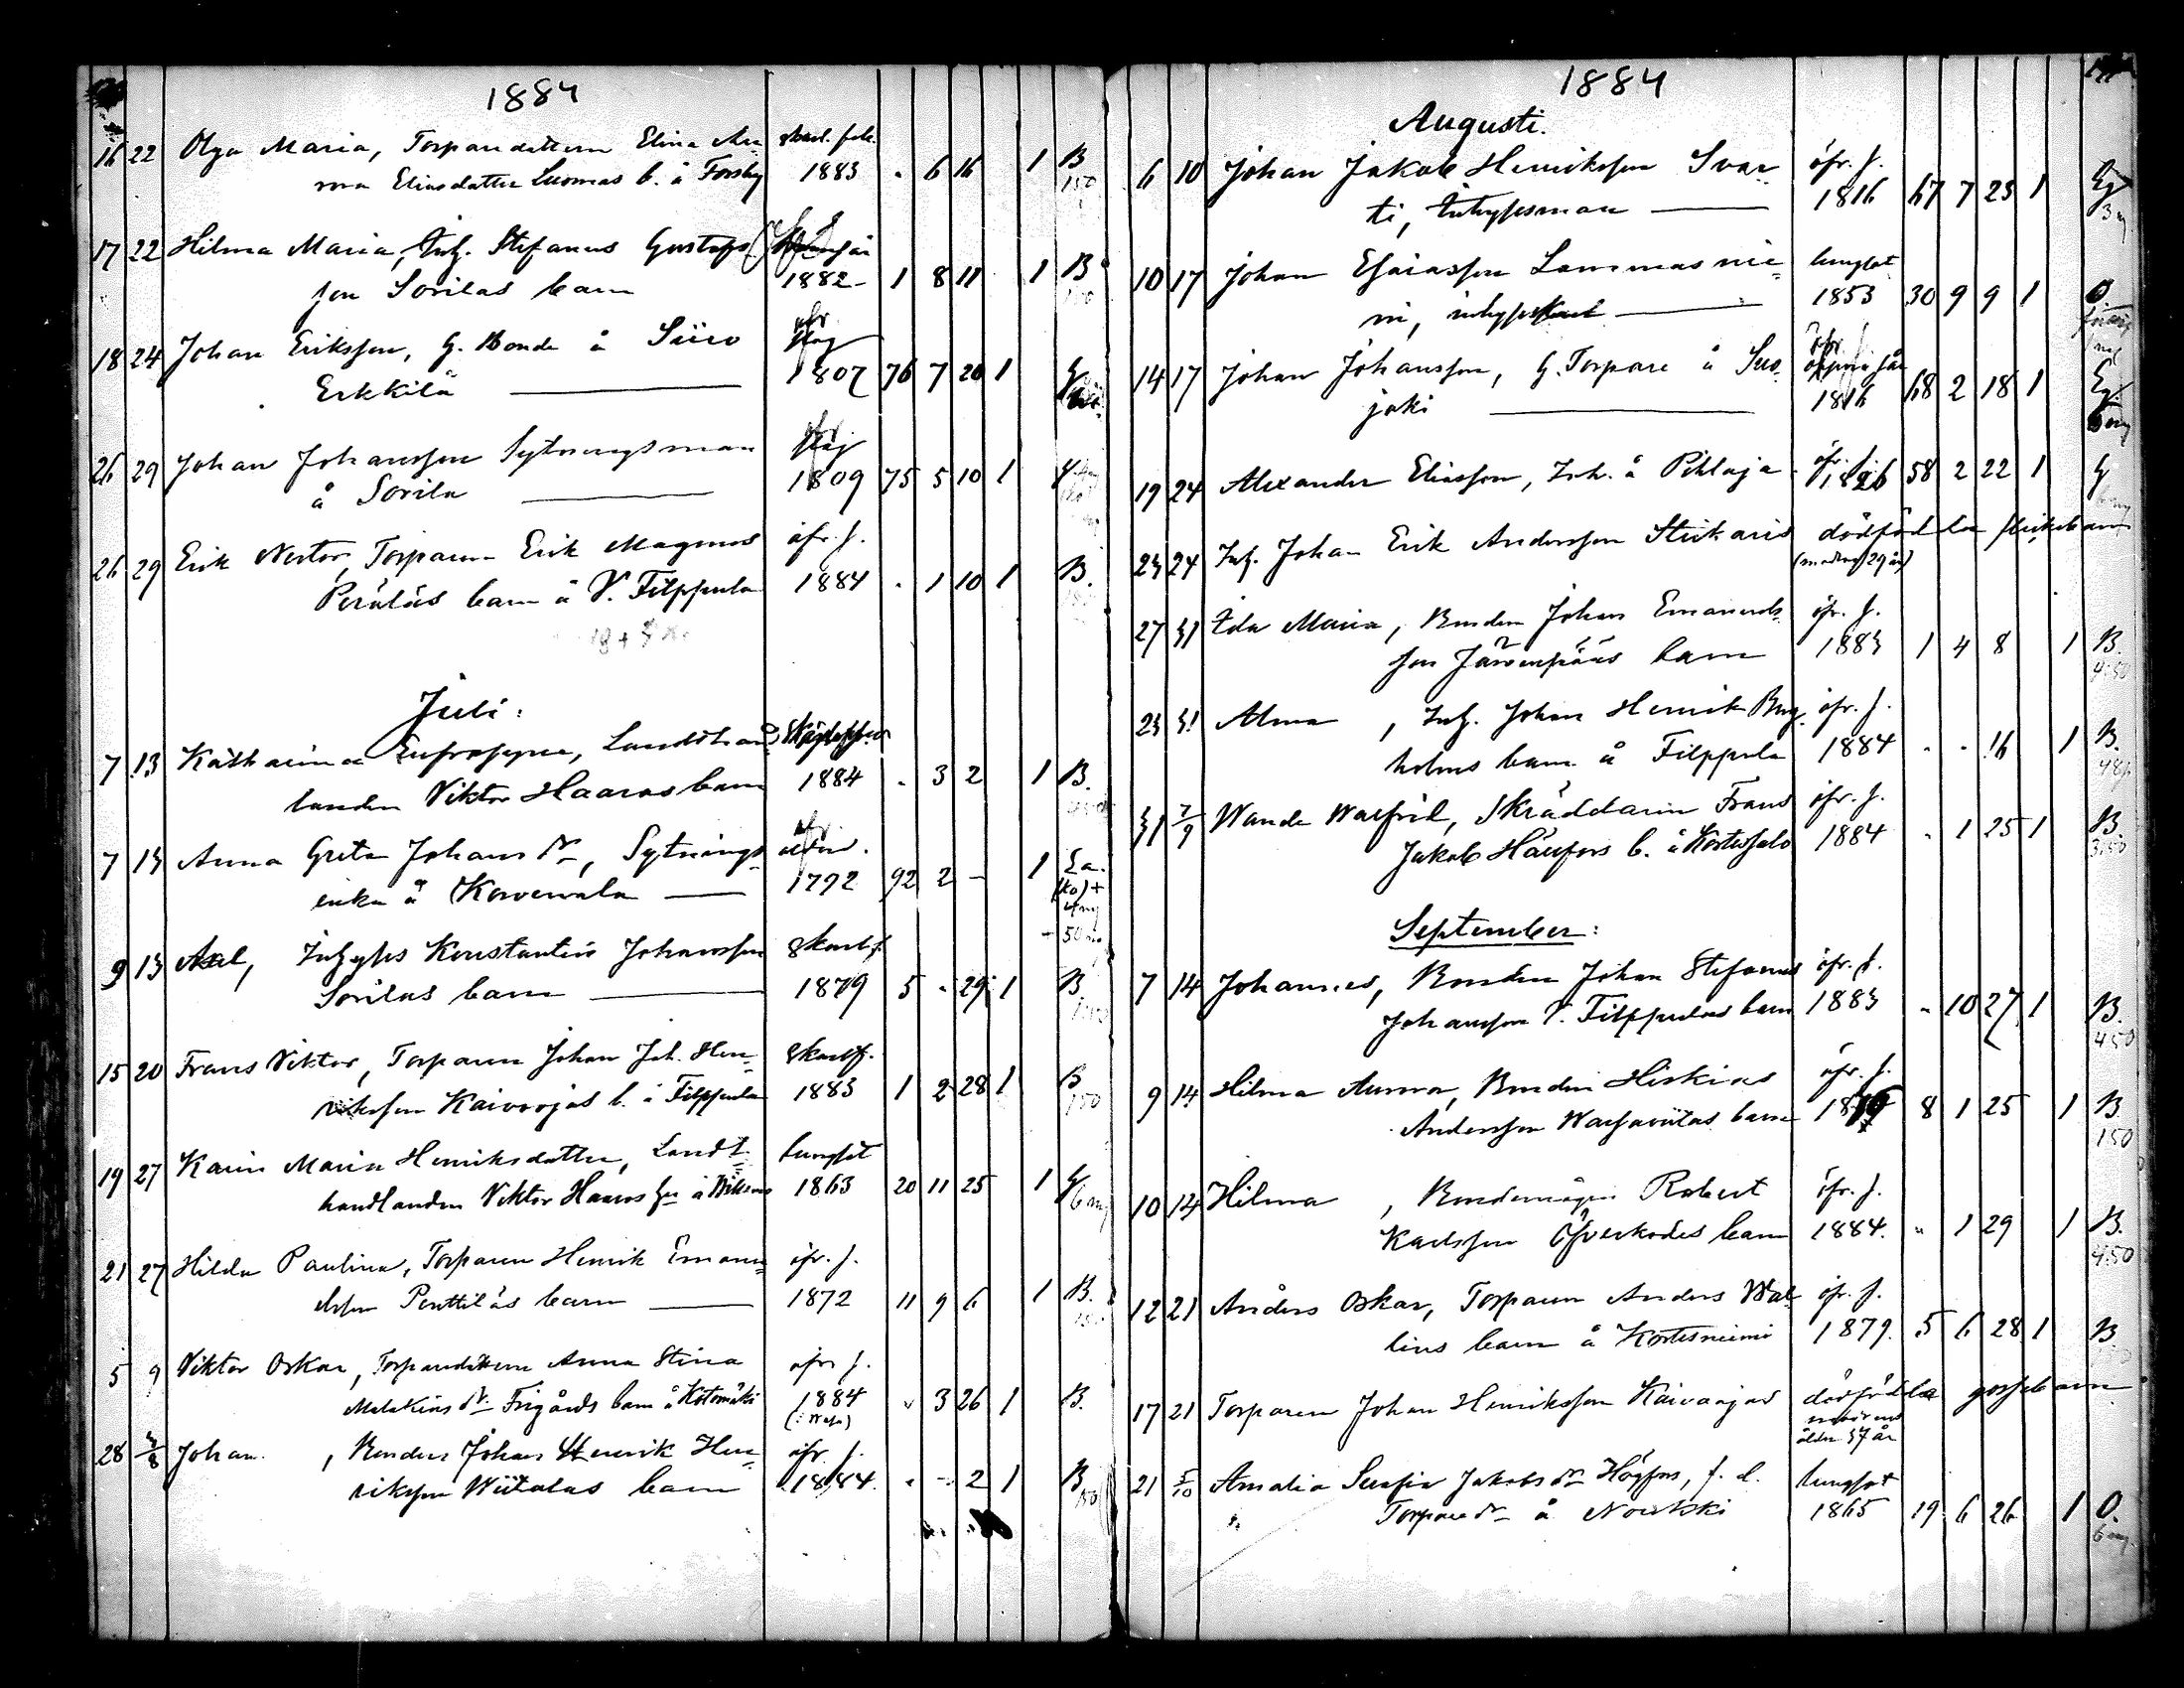 1884
16 22 Olga Maria, Torparedottern Elina An=
na Eliasdotter Luomas b. å Forsby 1883 " 6 16 1 B
150
17 22 Hilma Maria, Inh. Stefanus Gustafs
son Sorilas barn 1882 1 8 11 1 B
18 24 Johan Eriksson, G. Bonde å Siiro
Erkkilä 1807 76 7 20 1
26 29 Johan Johansson Sytningsman
å Sorila 1809 75 5 10 1
26 29 Erik Nestor, Torparen Erik Magnus öfr. f.
Peräläs barn å V. Filppula 1884 " 1 10 1 B.
Juli:
7 13 Katharina Eufrosyne, Landthand
landen Viktor Haaras barn 1884 " 3 2 1 B.
7 13 Anna Greta Johans dr, Sytnings=
enka å Korvenala 1792 92 2 - 1
9 13 Axel, Inhyses Konstantin Johansson
Sorilas barn 1879 5 " 29 1 B
15 20 Frans Viktor, Torparen Johan Joh. Hen=
riksson Kaivoojas b. å Filppula 1883 1 2 28 1 B
150
19 27 Karin Maria Henriksdotter, Landt= lungsot
handlanden Viktor Haaras 1863 20 11 25 1
21 27 Hilda Paulina, Torparen Henrik Emanu= öfr. f.
elsson Penttiläs barn 1872 11 9 6 1 B.
5 9 Viktor Oskar, Torparedottern Anna Stina öfr. f.
Malakias dr Frigårds barn å Kotomäki 1884 " 3 26 1 B.
(: Wasa)
28 3/8 Johan , Bonden Johan Henrik Hen= öfr. f.
riksson Wiitalas barn 1884. " - 2 1 B
150
1884
Augusti.
6 10 Johan Jakob Henriksson Svar= öfr. f.
ti, Inhysesman 1816 67 7 23 1
10 17 Johan Esaiasson Lammasnie= lungsot
mi, 1853 30 9 9 1 O
14 17 Johan Johansson, G. Torpare å Suo=
joki 1816 68 2 18 1
19 24 Alexander Eliasson, Inh. å Pihlaja öfr. f. 1826 58 2 22 1
23 24 Inh. Johan Erik Andersson Stikaris dödfödda flickebarn
(modren 29 år)
27 31 Ida Maria, Bonden Johan Emanuels= öfr. f.
son Järvenpääs barn 1883 1 4 8 1 B.
4:50
23 31 Alma , Inh. Johan Henrik öfr. f.
holms barn å Filppula 1884 " " 16 1 B.
31 7/9 Wanda Walfrid, Skräddaren Frans öfr. f.
Jakob b. å Kortesalo 1884 " 1 25 1 B.
3:50
September:
7 14 Johannes, Bonden Johan Stefanus öfr. f.
Johansson V. Filppulas barn 1883 " 10 27 1 B.
4:50
9 14 Hilma Aurora, Bonden Hiskias öfr. f.
Andersson barn 8 1 25 1 B
150
10 14 Hilma , Bondemågen Robert öfr. f.
Karlsson Öfverkodes barn 1884. " 1 29 1 B.
4:50
12 21 Anders Oskar, Torparen Anders Wal= öfr. f.
lins barn å Kortesniemi 1879. 5 6 28 1 B
17 21 Torparen Johan Henriksson Kaivoojas dödfödda gossebarn
modrens
ålder 37 år
21 5/10 Amalia Serafia Jakobs dr Högfors, f. d. lungsot
Torpare dr å Noukki 1865 19 6 26 1 O.